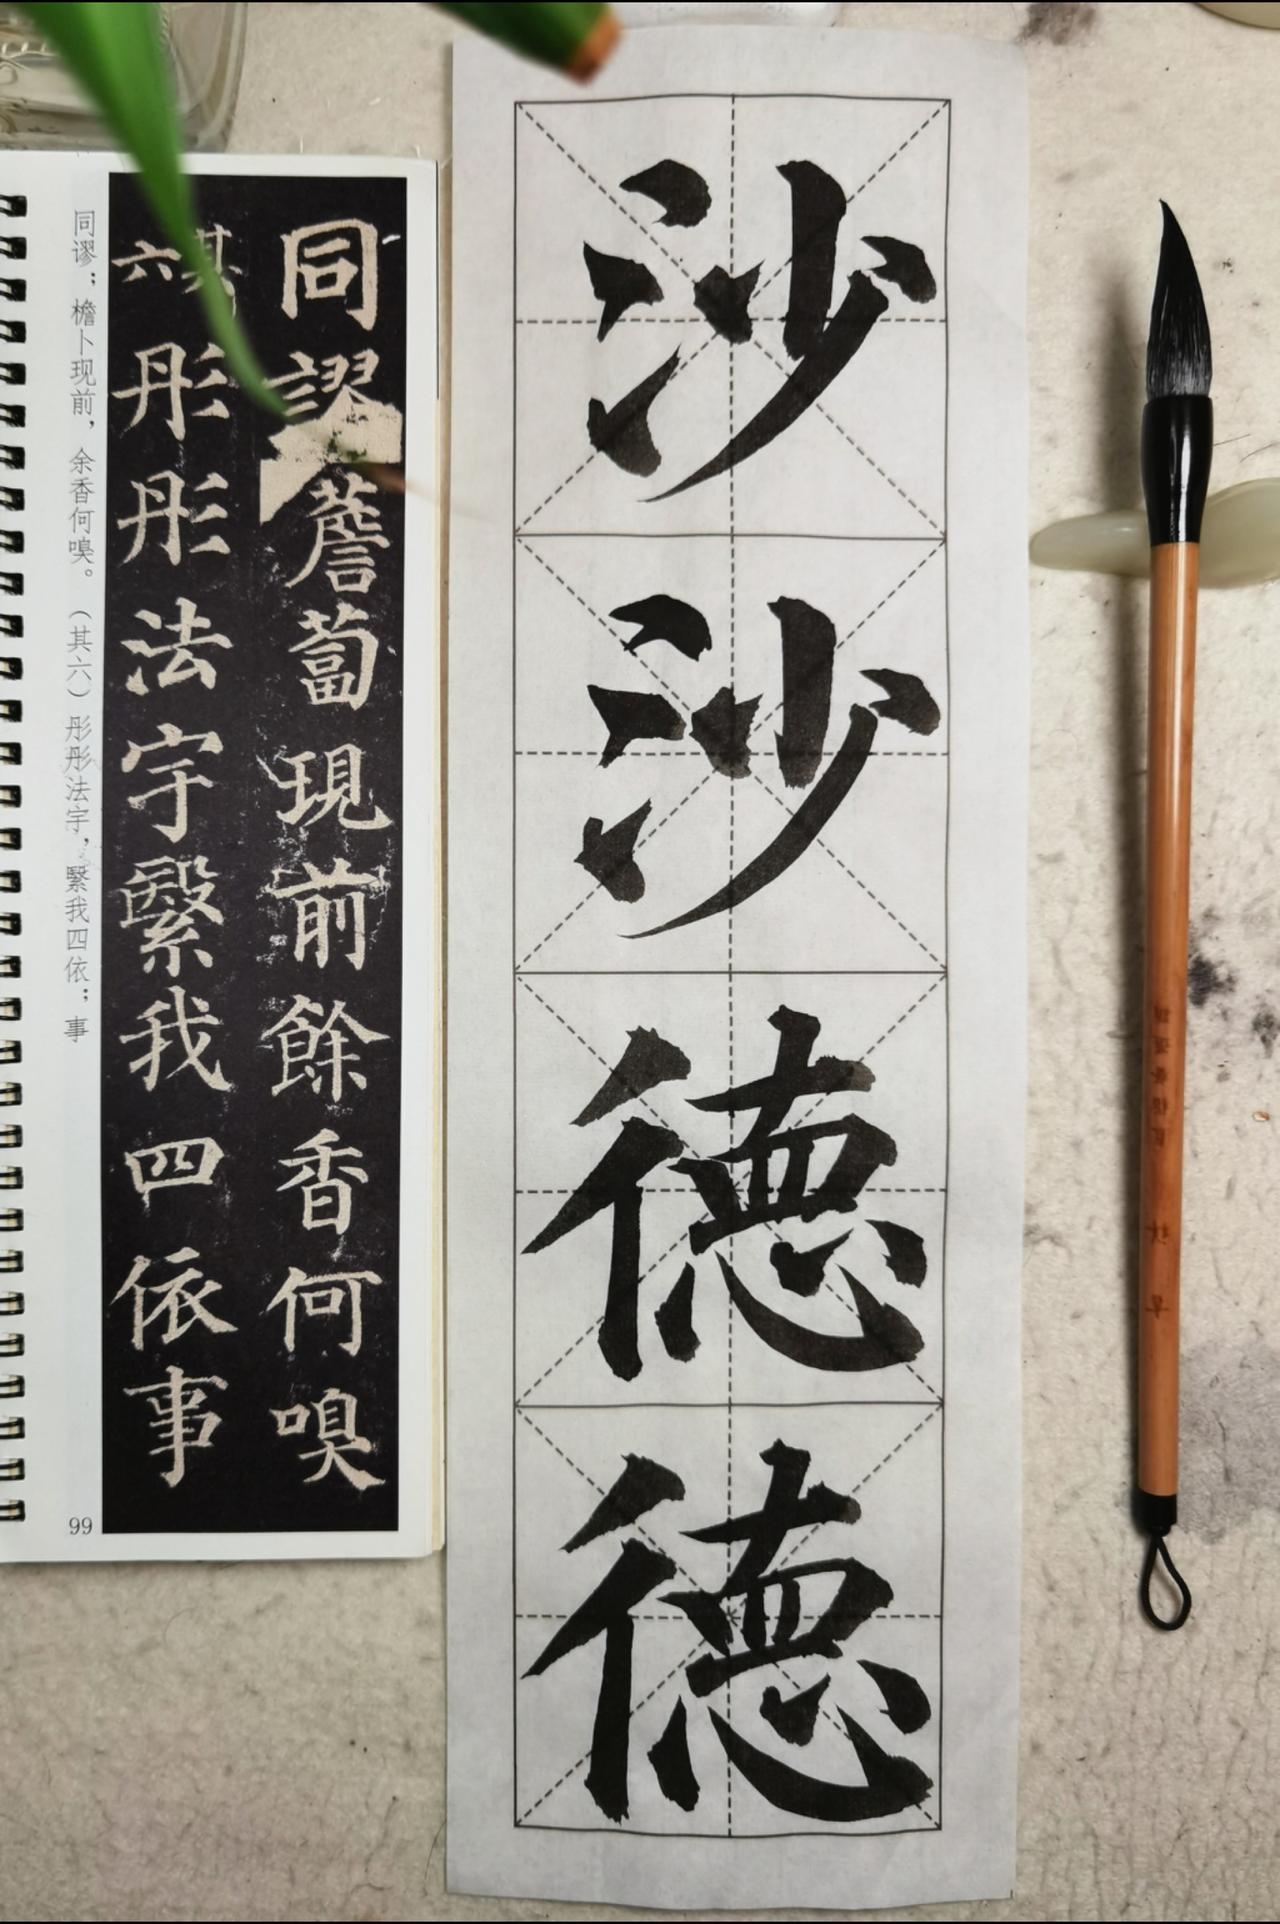 沙
沙
德
德
同謬薝蔔現前餘香何嗅
其六彤彤法宇繄我四依事
同谬；檐卜现前，余香何嗅。（其六）彤彤法宇，繄我四依；事
99